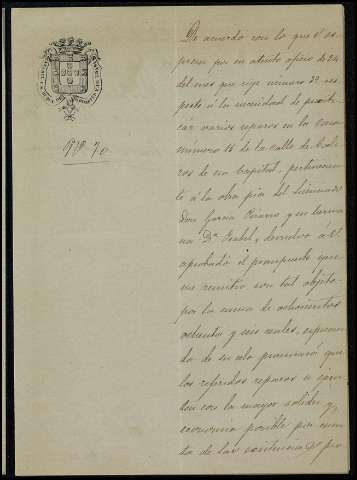 Nº. 70.
De acuerdo con lo que V. ex
presa en su atento oficio de 24
del mes que rige número 39 res
pecto á la necesidad de practi
car varios reparos en la casa
número 15 de la calle de
ros de esa Capital, pertenecien
te á la obra pia del Licenciado
Don Garcia y su herma
na Dª. Isabel, devuelvo á V.
aprobado el presupuesto que
me remitió con tal objeto
por la suma de ochocientos
ochenta y seis reales, esperan
do de su celo procurará que
los referidos reparos se ejecu
ten con la mayor solidez y
economia posible por cuen
ta de las existencias de pro